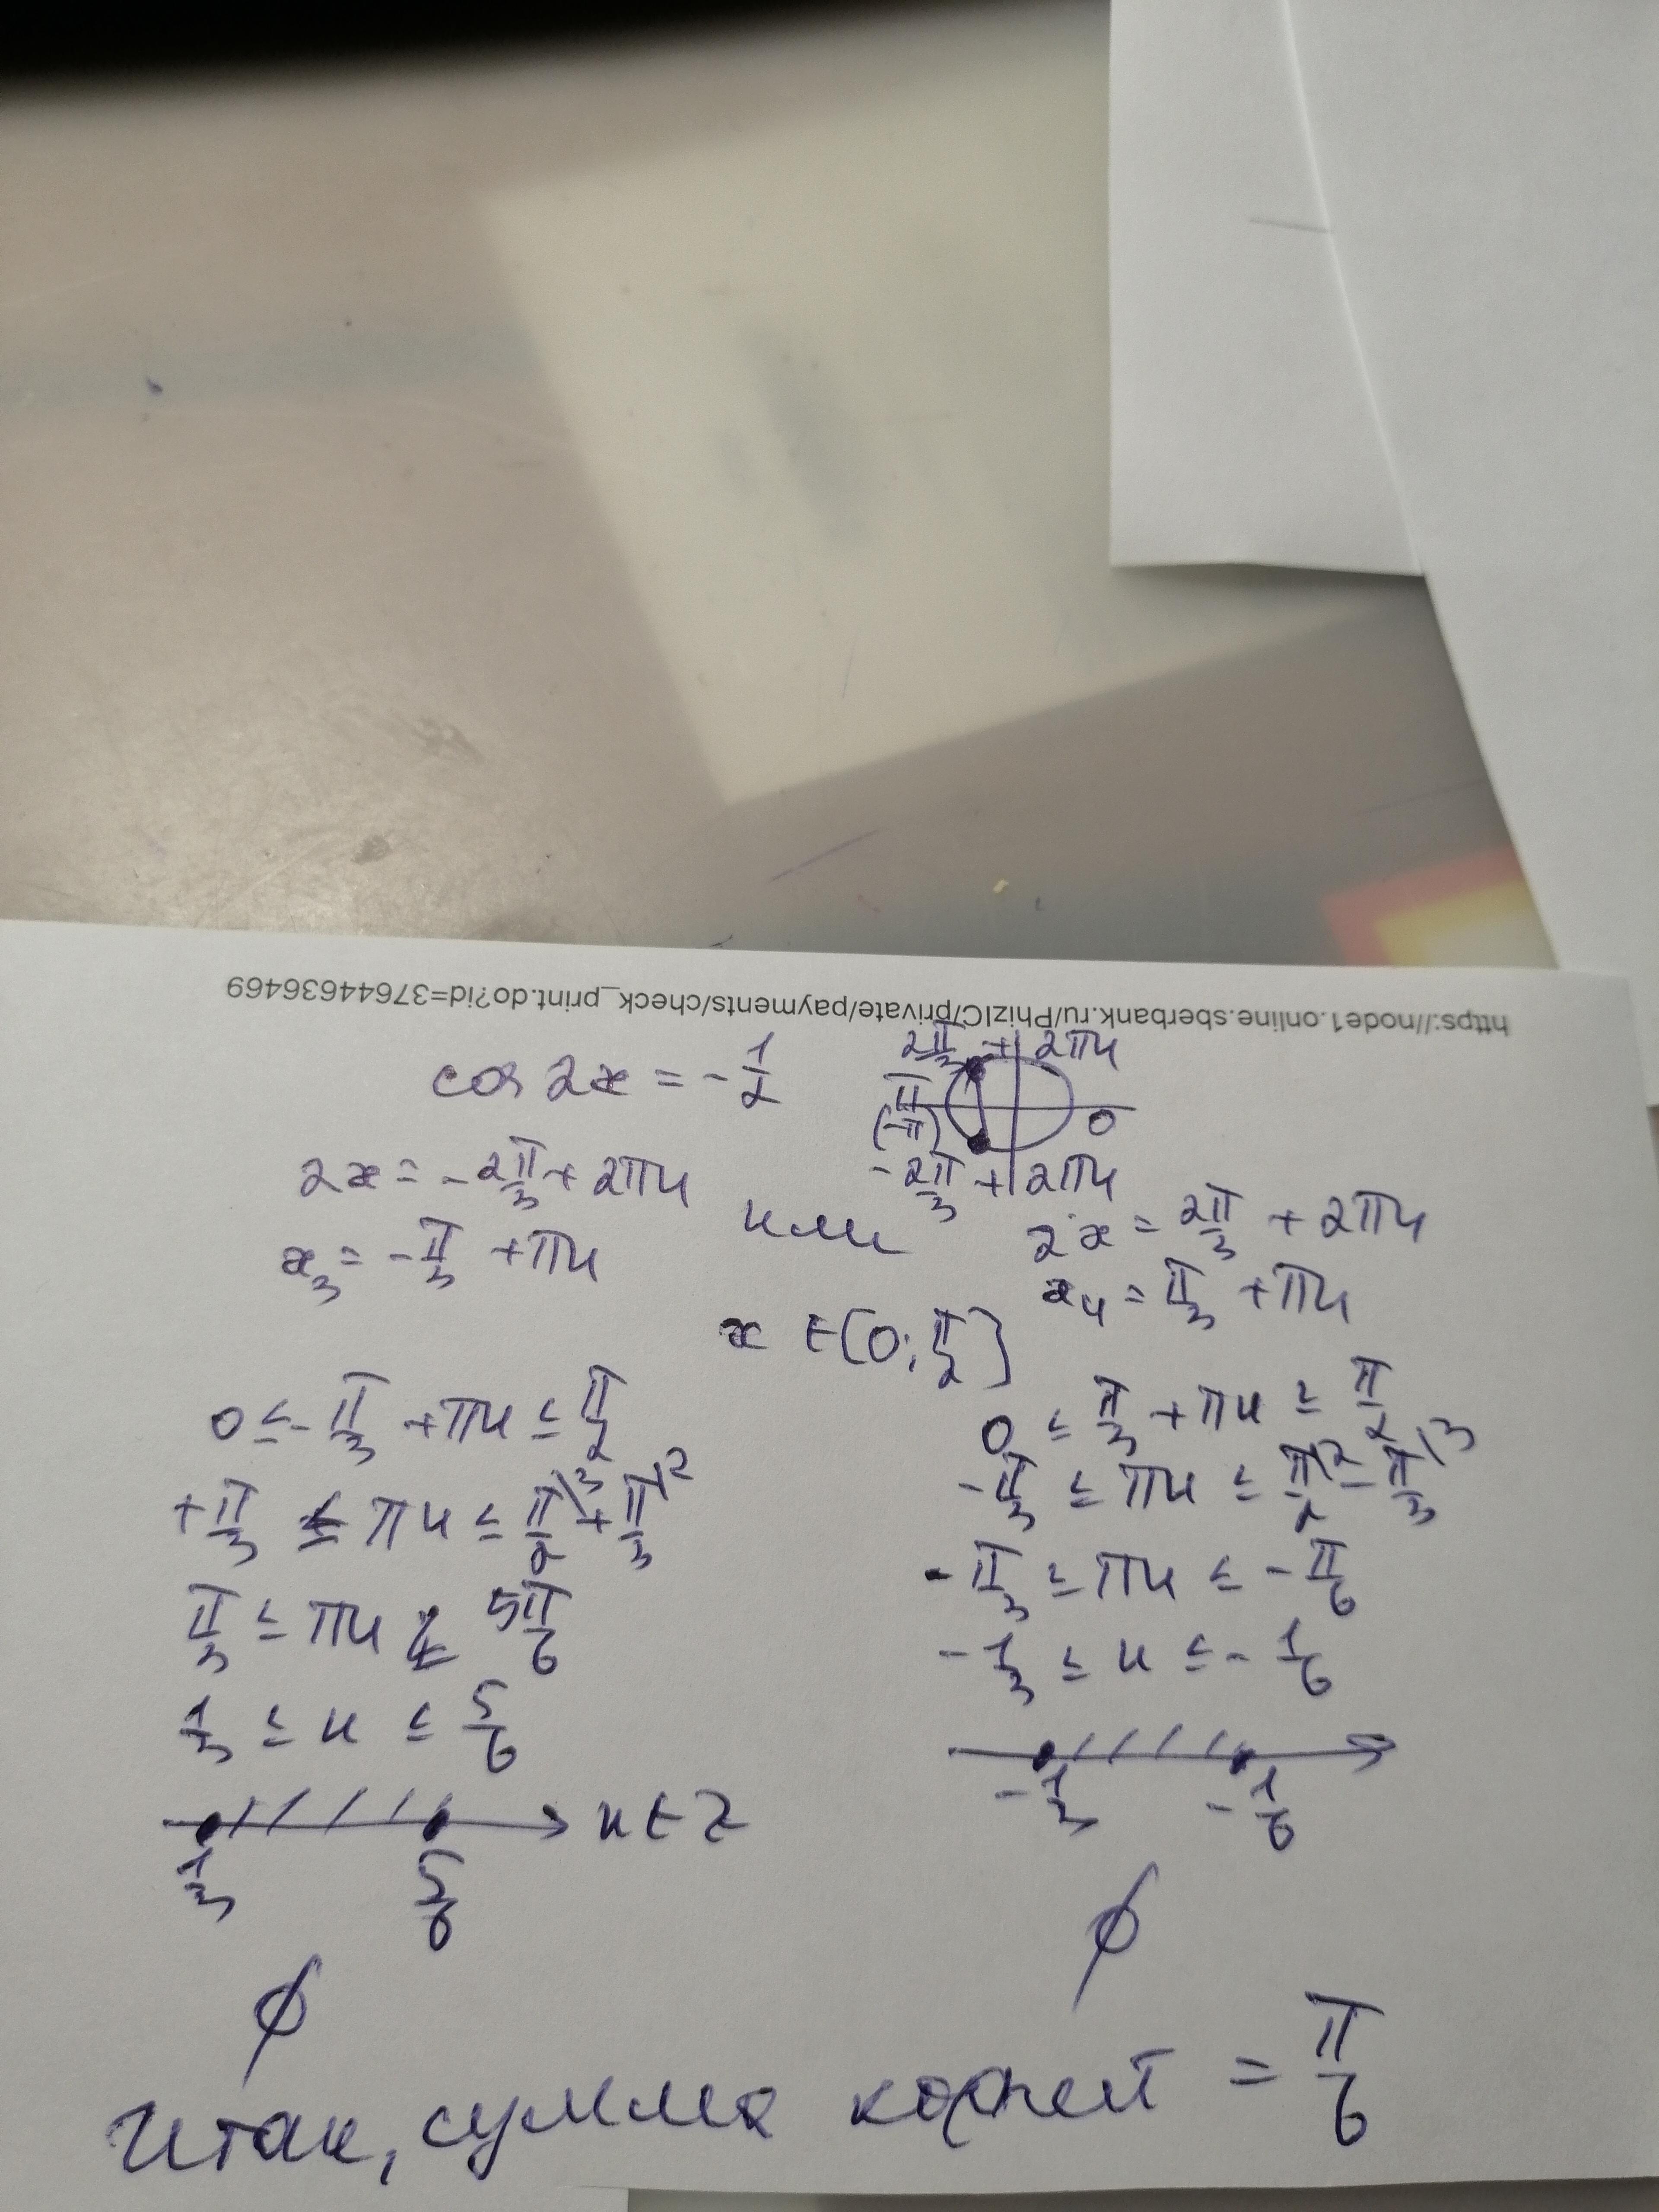 https://node1.online.sberbank.ru/PhizIC/private/payments/check_print.do?id=37644636469
cos 2x = - 1/2
2π/3 + 2πn
π
(-π)
0
- 2π/3 + 2πn
2x = - 2π/3 + 2πn
или
2x = 2π/3 + 2πn
x₃ = - π/3 + πn
x₄ = π/3 + πn
x ∈ [0; π/2]
0 ≤ - π/3 + πn ≤ π/2
+ π/3 ≤ πn ≤ π/2 \3 + π/3 \2
π/3 ≤ πn ≤ 5π/6
1/3 ≤ n ≤ 5/6
n ∈ Z
1/3
5/6
∅
0 ≤ π/3 + πn ≤ π/2
- π/3 ≤ πn ≤ π/2 \2 - π/3 \3
- π/3 ≤ πn ≤ - π/6
- 1/3 ≤ n ≤ - 1/6
- 1/3
- 1/6
∅
Итак, сумма корней = π/6